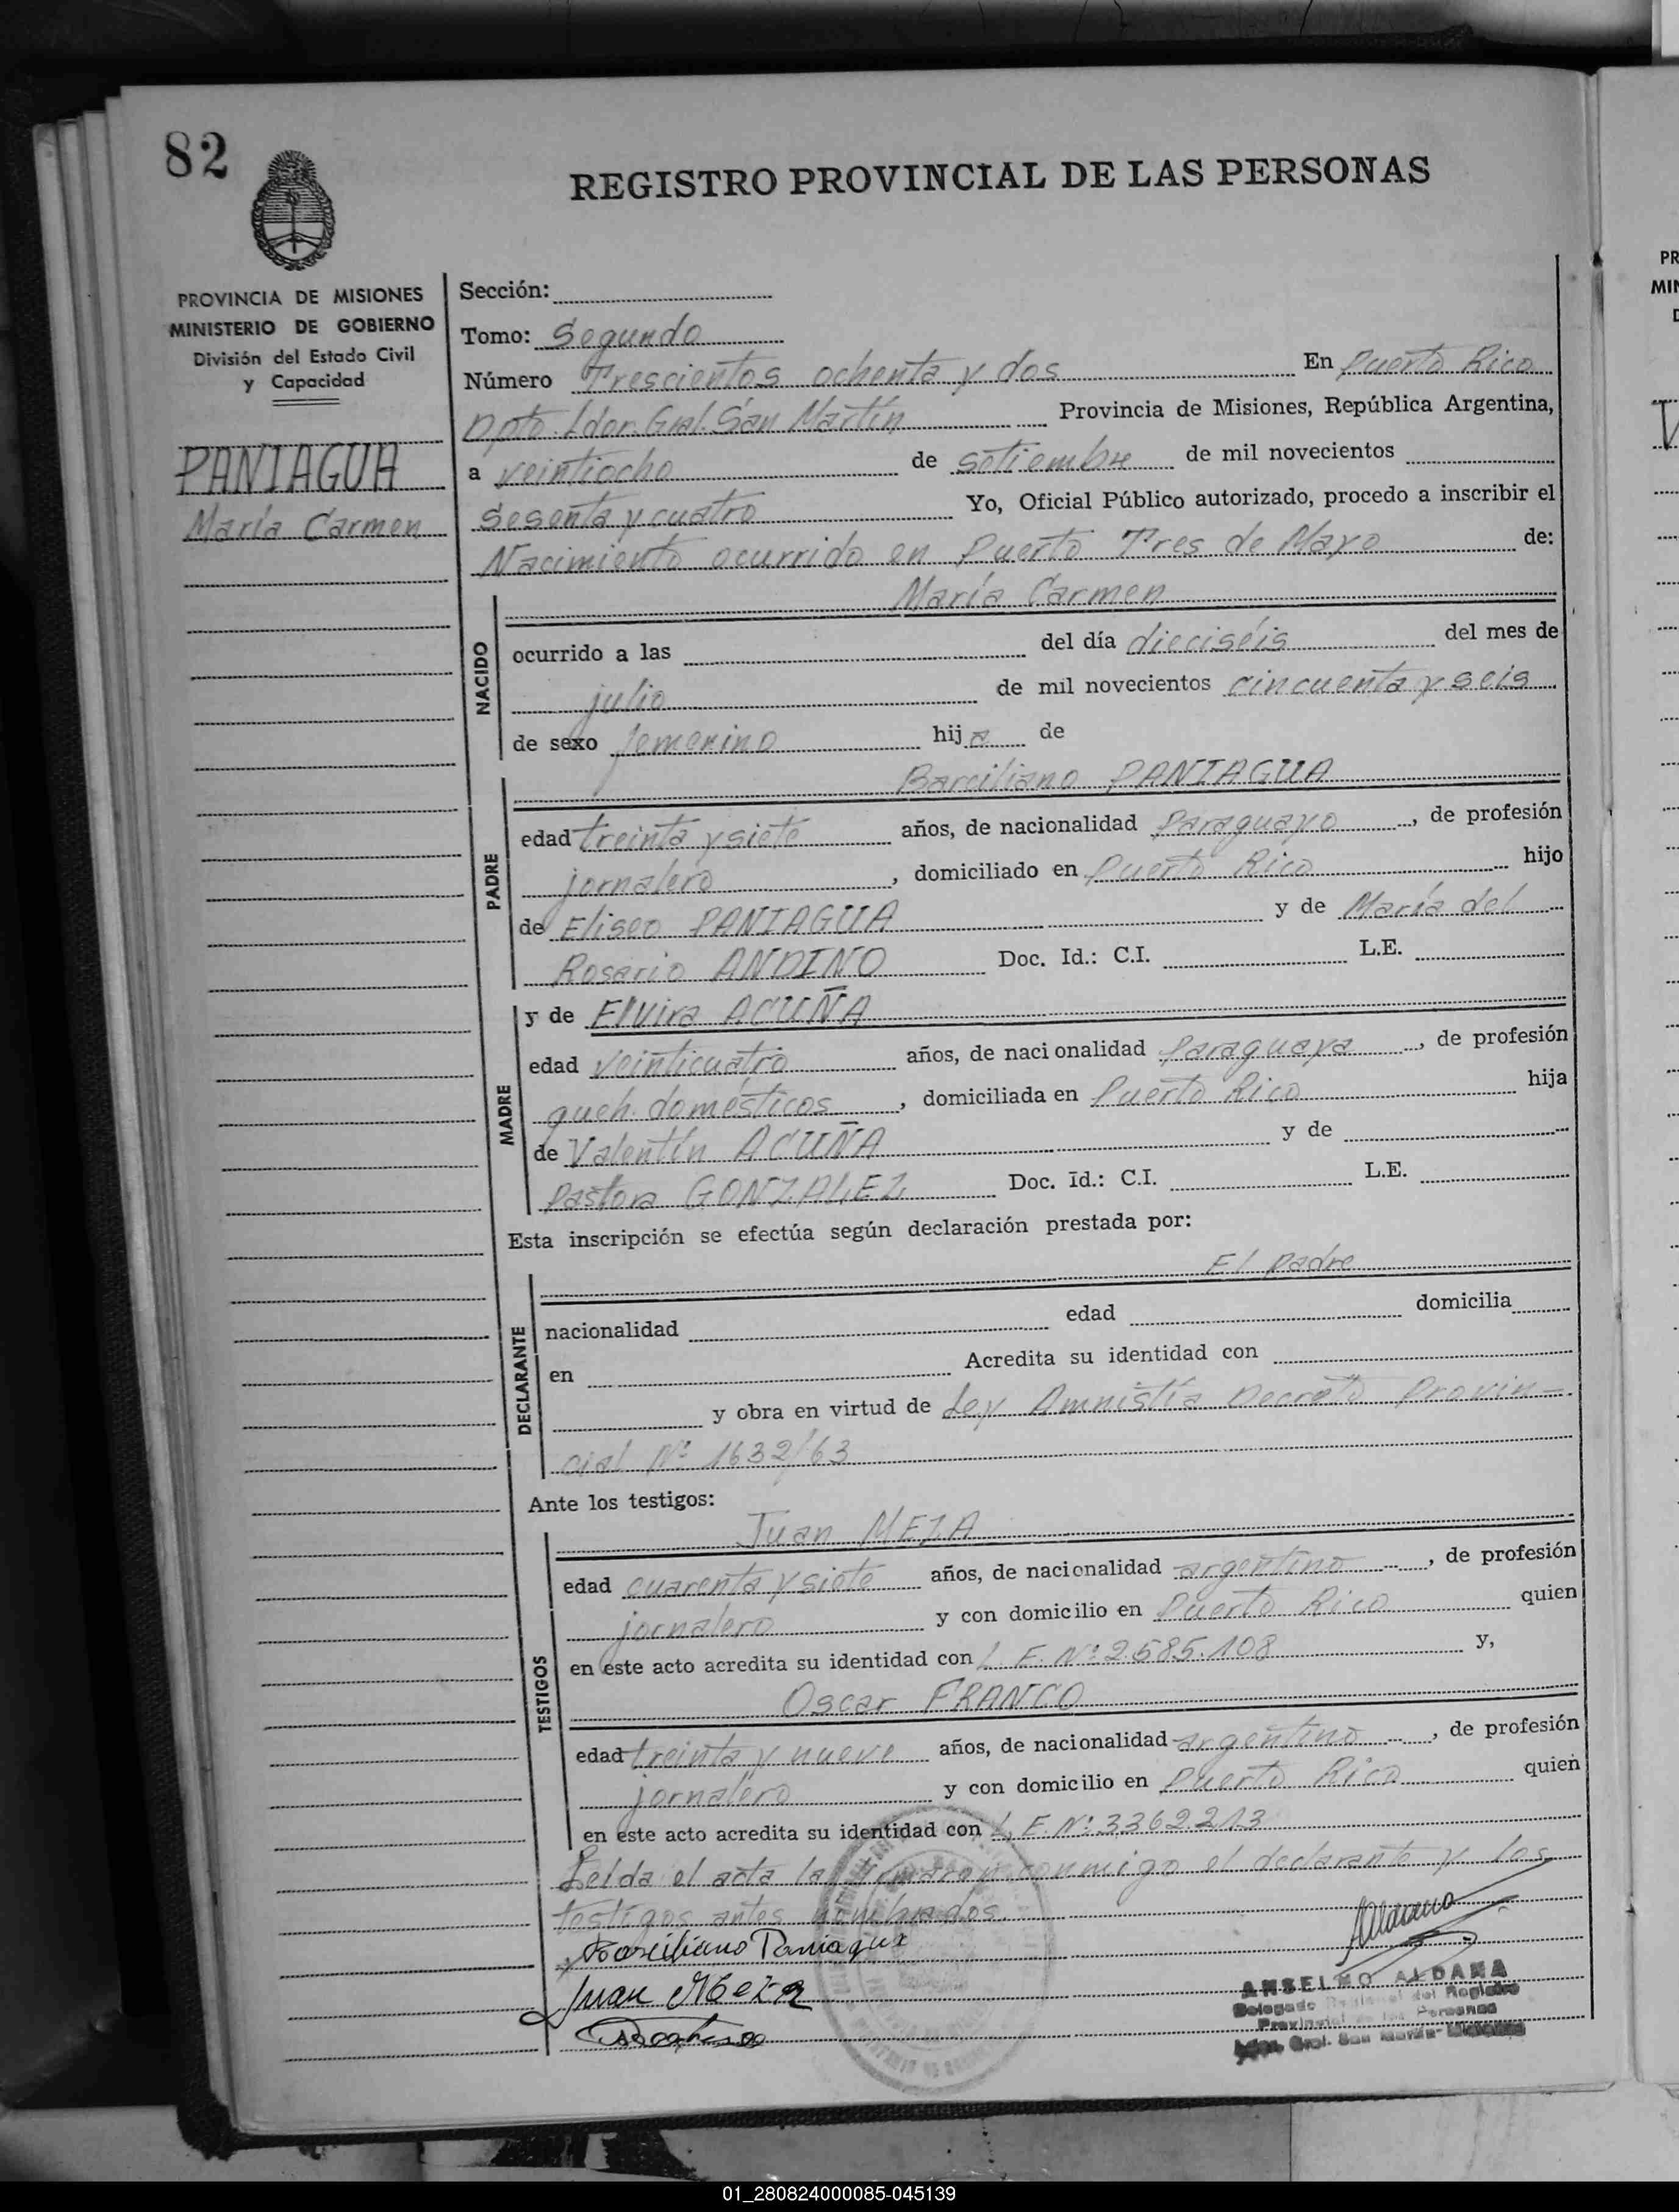 82
REGISTRO PROVINCIAL DE LAS PERSONAS
PROVINCIA DE MISIONES
MINISTERIO DE GOBIERNO
División del Estado Civil
y Capacidad
PANIAGUA
María Carmen
Sección:
Tomo: Segundo
Número Trescientos ochenta y dos En Puerto Rico
Dpto. Ldor. Gral. San Martín Provincia de Misiones, República Argentina,
a veintiocho de setiembre de mil novecientos
sesenta y cuatro Yo, Oficial Público autorizado, procedo a inscribir el
Nacimiento ocurrido en Puerto Tres de Mayo de:
NACIDO
María Carmen
ocurrido a las del día dieciséis del mes de
julio de mil novecientos cincuenta y seis
de sexo femenino hija de
PADRE
Barciliano PANIAGUA
edad treinta y siete años, de nacionalidad paraguayo, de profesión
jornalero, domiciliado en Puerto Rico hijo
de Eliseo PANIAGUA y de María del
Rosario ANDINO Doc. Id.: C.I. L.E.
MADRE
y de Elvira ACUÑA
edad veinticuatro años, de nacionalidad paraguaya, de profesión
queh. domésticos, domiciliada en Puerto Rico hija
de Valentín ACUÑA y de
Pastora GONZALEZ Doc. Id.: C.I. L.E.
Esta inscripción se efectúa según declaración prestada por:
DECLARANTE
El padre
nacionalidad edad domicilia
en Acredita su identidad con
y obra en virtud de Ley Amnistía Decreto Provin-
cial Nº 1632/63
Ante los testigos:
TESTIGOS
Juan MEZA
edad cuarenta y siete años, de nacionalidad argentino, de profesión
jornalero y con domicilio en Puerto Rico quien
en este acto acredita su identidad con L.E. Nº 2.585.108 y,
Oscar FRANCO
edad treinta y nueve años, de nacionalidad argentino, de profesión
jornalero y con domicilio en Puerto Rico quien
en este acto acredita su identidad con L.E. Nº 3362213
Leída el acta la firmaron conmigo el declarante y los
testigos antes nombrados.
Barciliano Paniagua
Juan Meza
ANSELMO ALDANA
Delegado Regional del Registro
Provincial de las Personas
Ldor. Gral. San Martín - Misiones
01_280824000085-045139